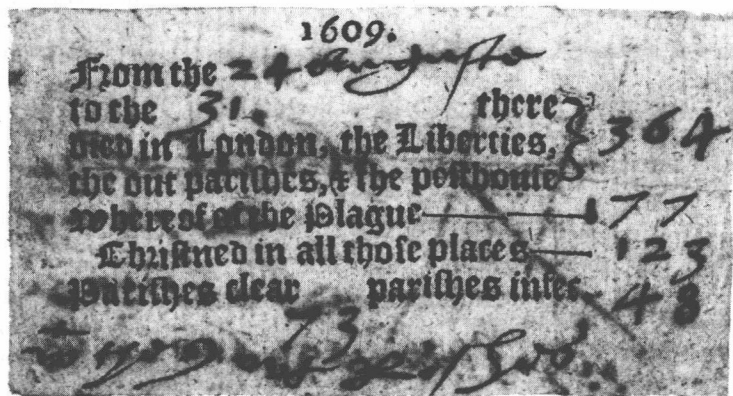 1609.
From the 24 Auguste
to the 31. there
died in London, the Liberties, 364
the out parishes, & the pesthouse
whereof of the Plague 177
Christned in all those places 123
Parishes clear 73 parishes infec. 48